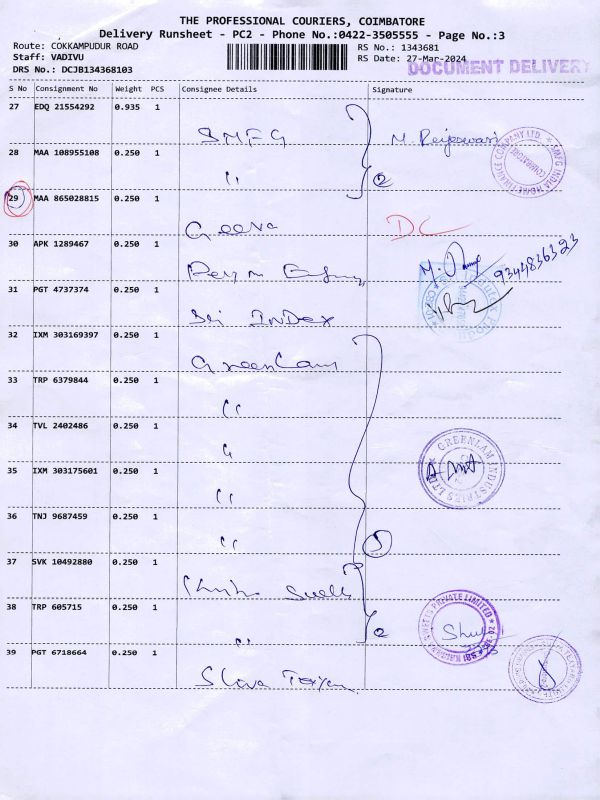 THE PROFESSIONAL COURIERS, COIMBATORE
Delivery Runsheet - PC2 - Phone No.:0422-3505555 - Page No.:3
Route: COKKAMPUDUR ROAD
RS No.: 1343681
Staff: VADIVU
RS Date: 27-Mar-2024
DRS No.: DCJB134368103
DOCUMENT DELIVERY
S No Consignment No Weight PCS Consignee Details Signature
27 EDQ 21554292 0.935 1 SMFG
28 MAA 108955108 0.250 1 "
2
29 MAA 865028815 0.250 1 Geena DC
30 APK 1289467 0.250 1
9344836323
31 PGT 4737374 0.250 1 Sri InDex
32 IXM 303169397 0.250 1 GreenLam
33 TRP 6379844 0.250 1 "
34 TVL 2402486 0.250 1 "
GREENLAM INDUSTRIES LTD
35 IXM 303175601 0.250 1 "
36 TNJ 9687459 0.250 1 "
5
37 SVK 10492880 0.250 1
38 TRP 605715 0.250 1 "
2
PRIVATE LIMITED
39 PGT 6718664 0.250 1